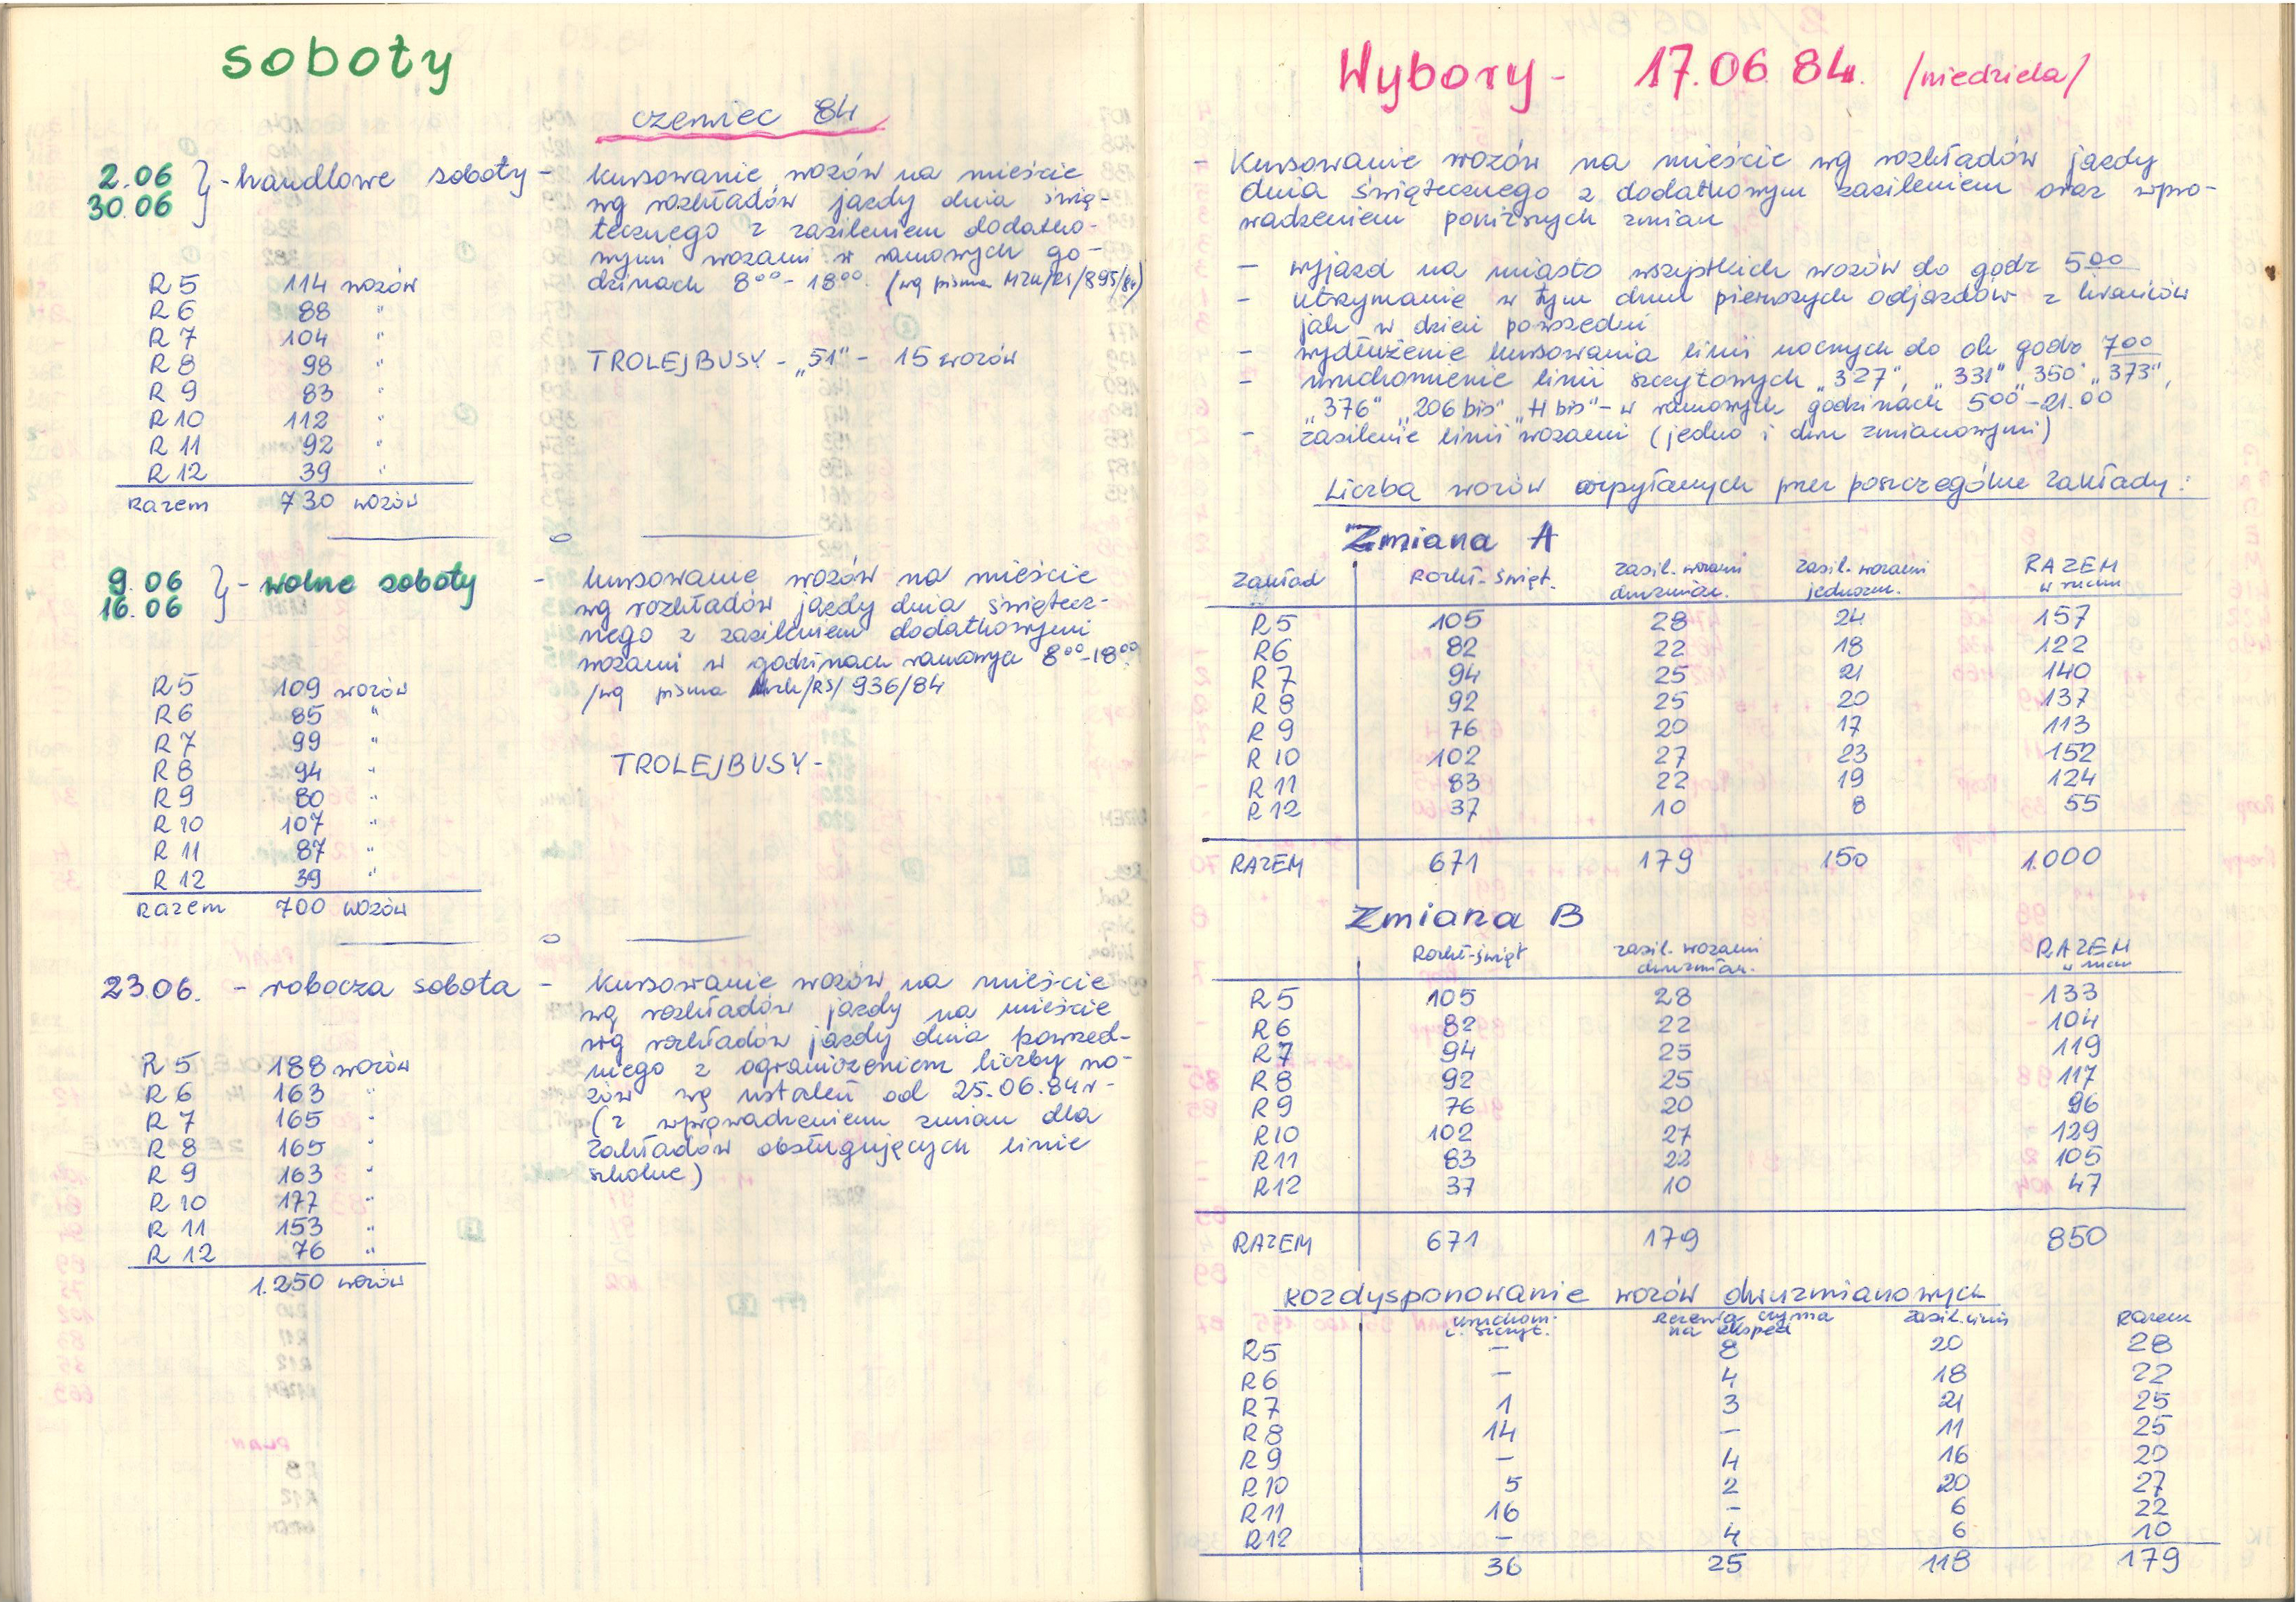 soboty
czerwiec 84
2.06
30.06 } - handlowe soboty - kursowanie wozów na mieście
wg rozkładów jazdy dnia świą-
tecznego z zasileniem dodatko-
wymi wozami w ramowych go-
dzinach 8⁰⁰ - 18⁰⁰. (wg pisma MZK/RS/895/84)
R 5 114 wozów
R 6 88 "
R 7 104 "
R 8 98 "
R 9 83 "
R 10 112 "
R 11 92 "
R 12 39 "
Razem 730 wozów
TROLEJBUSY - „51" - 15 wozów
9.06
16.06 } - wolne soboty - kursowanie wozów na mieście
wg rozkładów jazdy dnia świątecz-
nego z zasileniem dodatkowymi
wozami w godzinach ramowych 8⁰⁰-18⁰⁰
/wg pisma MZK/RS/936/84
R 5 109 wozów
R 6 85 "
R 7 99 "
R 8 94 "
R 9 80 "
R 10 107 "
R 11 87 "
R 12 39 "
Razem 700 wozów
TROLEJBUSY -
23.06. - robocza sobota - kursowanie wozów na mieście
wg rozkładów jazdy na mieście
wg rozkładów jazdy dnia powszed-
niego z ograniczeniem liczby wo-
zów wg ustaleń od 25.06.84r -
(z wprowadzeniem zmian dla
zakładów obsługujących linie
szkolne)
R 5 188 wozów
R 6 163 "
R 7 165 "
R 8 165 "
R 9 163 "
R 10 177 "
R 11 153 "
R 12 76 "
1.250 wozów
Wybory - 17.06.84. /niedziela/
- Kursowanie wozów na mieście wg rozkładów jazdy
dnia świątecznego z dodatkowym zasileniem oraz wpro-
wadzeniem poniższych zmian
- wyjazd na miasto wszystkich wozów do godz 5⁰⁰
- utrzymanie w tym dniu pierwszych odjazdów z krańców
jak w dzień powszedni
- wydłużenie kursowania linii nocnych do ok godz 7⁰⁰
- uruchomienie linii szczytowych „327", „331" „350" „373",
„376" „206 bis" „H bis" - w ramowych godzinach 5⁰⁰-21.⁰⁰
- zasilenie linii wozami (jedno i dwu zmianowymi)
Liczba wozów wysyłanych przez poszczególne zakłady:
Zmiana A
Zakład Rozkł-święt. zasil. wozami dwuzmian. zasil. wozami jednozm. RAZEM w ruchu
R 5 105 28 24 157
R 6 82 22 18 122
R 7 94 25 21 140
R 8 92 25 20 137
R 9 76 20 17 113
R 10 102 27 23 152
R 11 83 22 19 124
R 12 37 10 8 55
RAZEM 671 179 150 1.000
Zmiana B
Rozkł-święt zasil. wozami dwuzmian. RAZEM w ruchu
R 5 105 28 133
R 6 82 22 104
R 7 94 25 119
R 8 92 25 117
R 9 76 20 96
R 10 102 27 129
R 11 83 22 105
R 12 37 10 47
RAZEM 671 179 850
Rozdysponowanie wozów dwuzmianowych
uruchom. l. szczyt. Rezerwa czynna na eksped zasil. linii Razem
R 5 - 8 20 28
R 6 - 4 18 22
R 7 1 3 21 25
R 8 14 - 11 25
R 9 - 4 16 20
R 10 5 2 20 27
R 11 16 - 6 22
R 12 - 4 6 10
36 25 118 179